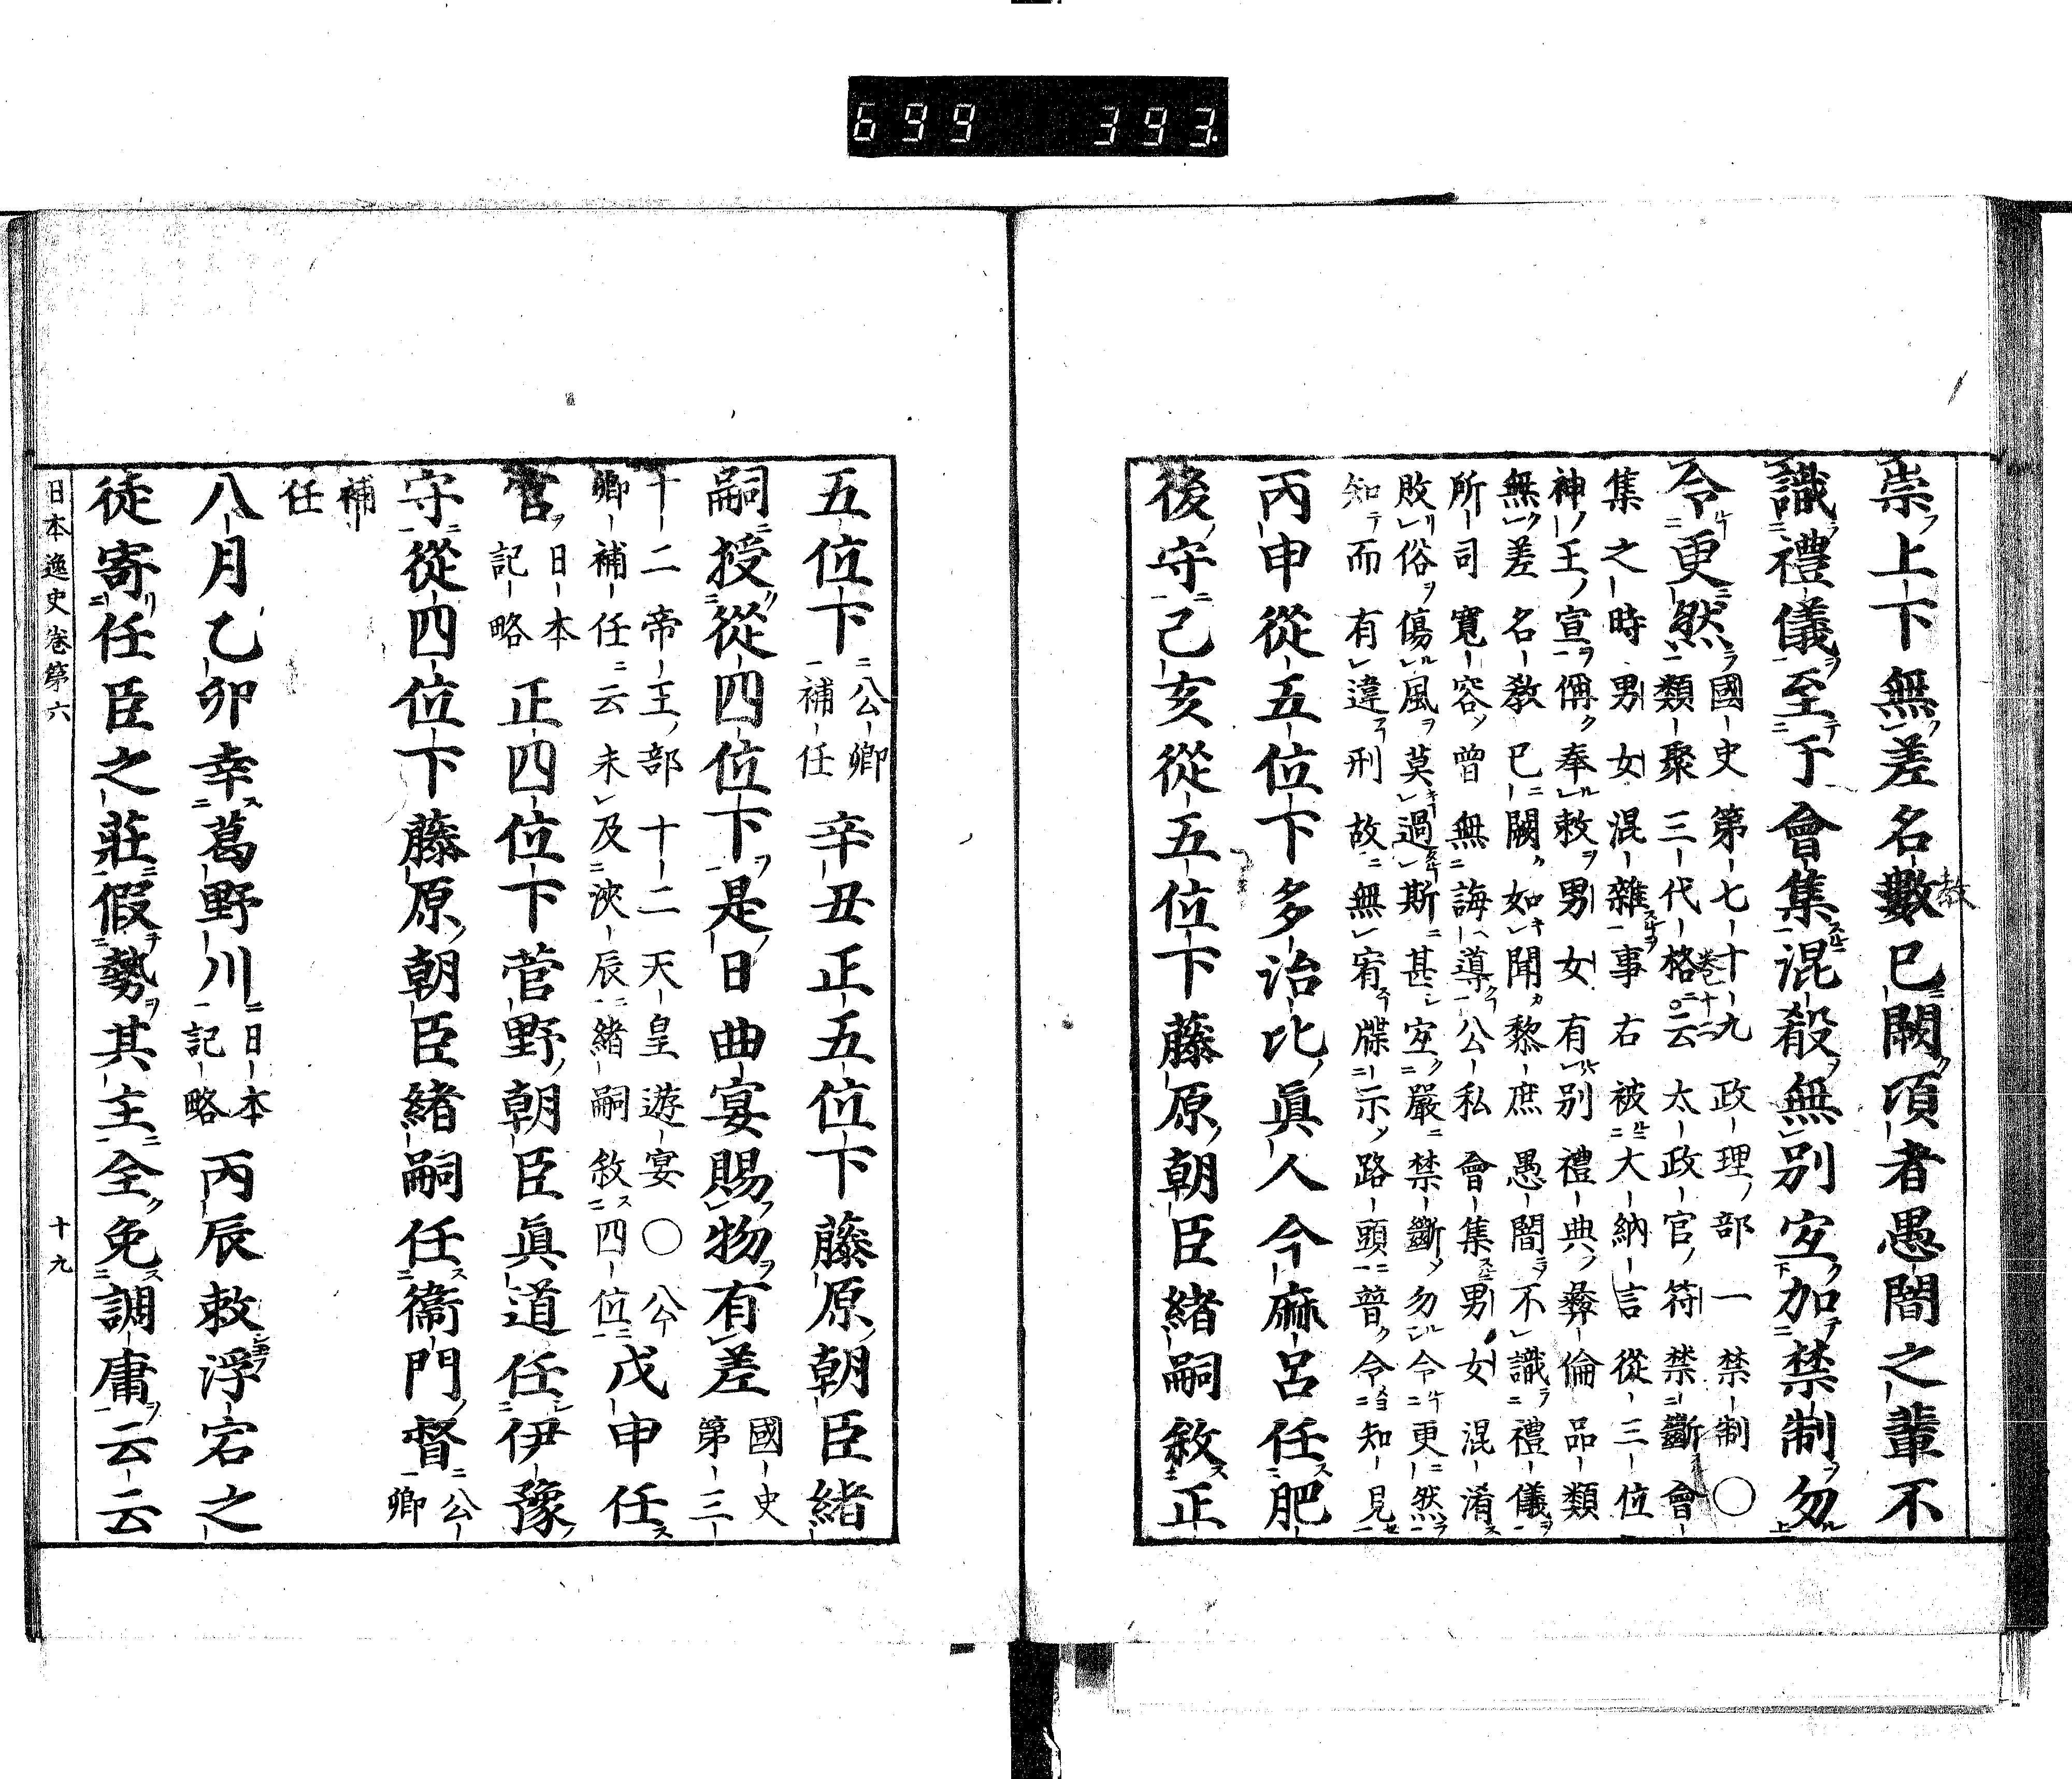 699 393
崇上下無差名數已闕項者愚闇之輩不
教
識禮儀至于會集混殽無別宐加禁制勿
令更然
國史第七十九政理部一禁制〇
類聚三代格云太政官符禁斷會
卷十二
集之時男女混雜事右被大納言從三位
神王宣偁奉敕男女有別禮典彝倫品類
無差名敎已闕如聞黎庶愚闇不識禮儀
所司寬容曾無誨導公私會集男女混淆
敗俗傷風莫過斯甚宐嚴禁斷勿令更然
知而有違刑故無宥牒示路頭普令知見
丙申從五位下多治比眞人今麻呂任肥
後守己亥從五位下藤原朝臣緒嗣敘正
五位下
公卿
補任
辛丑正五位下藤原朝臣緒
嗣授從四位下是日曲宴賜物有差
國史
第三
十二帝王部十二天皇遊宴〇公
卿補任云未及浹辰緒嗣敘四位
戊申任
官
日本
記略
正四位下菅野朝臣眞道任伊豫
守從四位下藤原朝臣緒嗣任衞門督
公
卿
補
任
八月乙卯幸葛野川
日本
記略
丙辰敕浮宕之
徒寄任臣之莊假勢其主全免調庸云云
日本逸史卷第六 十九